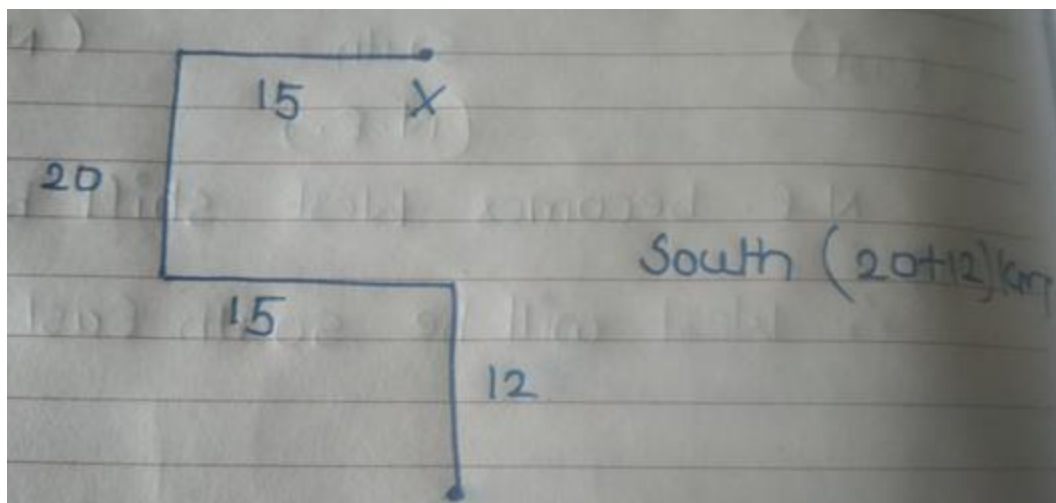 15 X
20
South (20+12)km
15
12